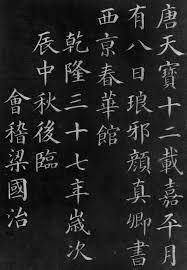 唐天寶十二載嘉平月
有八日琅邪顏真卿書
西京春華館
乾隆三十七年歲次
辰中秋後臨
會稽梁國治